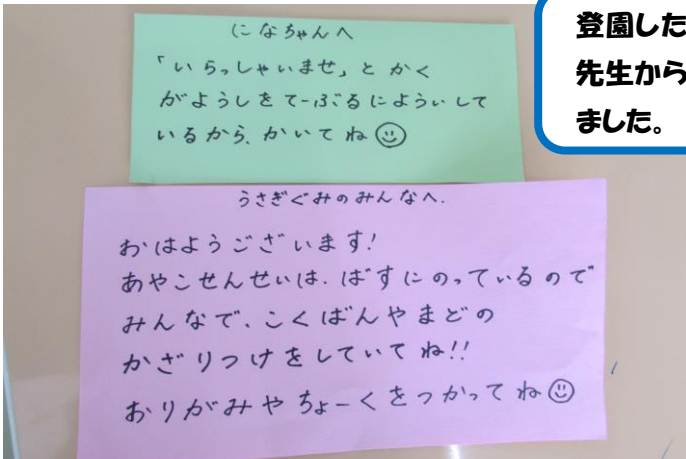 になちゃんへ
「いらっしゃいませ」とかく
がようしをてーぶるにようぃして
いるから、かいてね
うさぎぐみのみんなへ.
おはようございます!
あやこせんせいは、ばすにのっているので
みんなで、こくばんやまどの
かざりつけをしていてね!!
おりがみやちょーくをつかってね
登園した
先生から
ました。